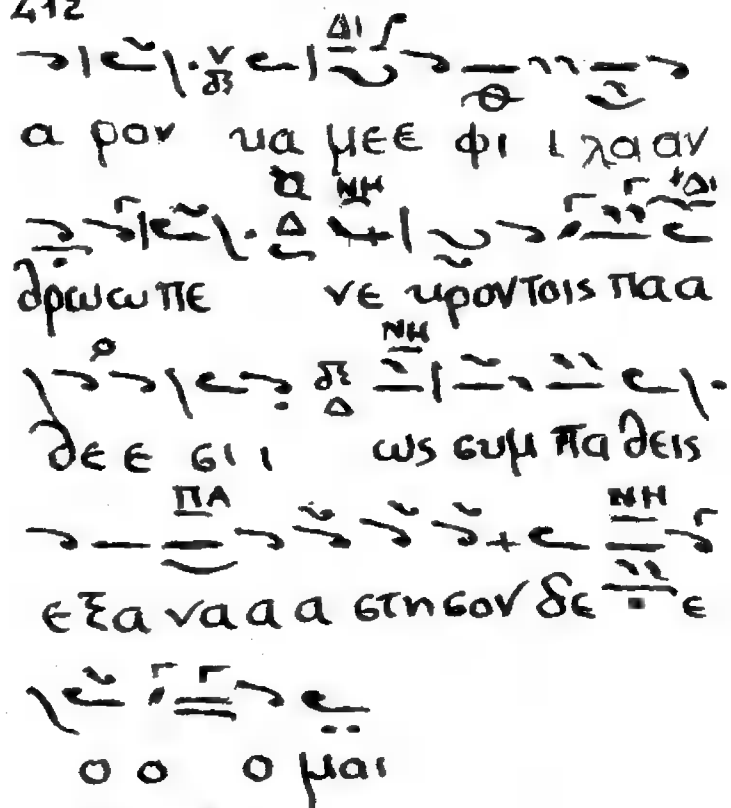 412
Δι
α ρον κα μεε φι ι λααν
Δ ΝΗ Δι
θρωωω πε νε κροντοις παα
ΝΗ
θε ε σι ι ως συμ πα θεις
ΠΑ ΝΗ
ε ξα να α α στησον δε ε
ο ο ο μαι